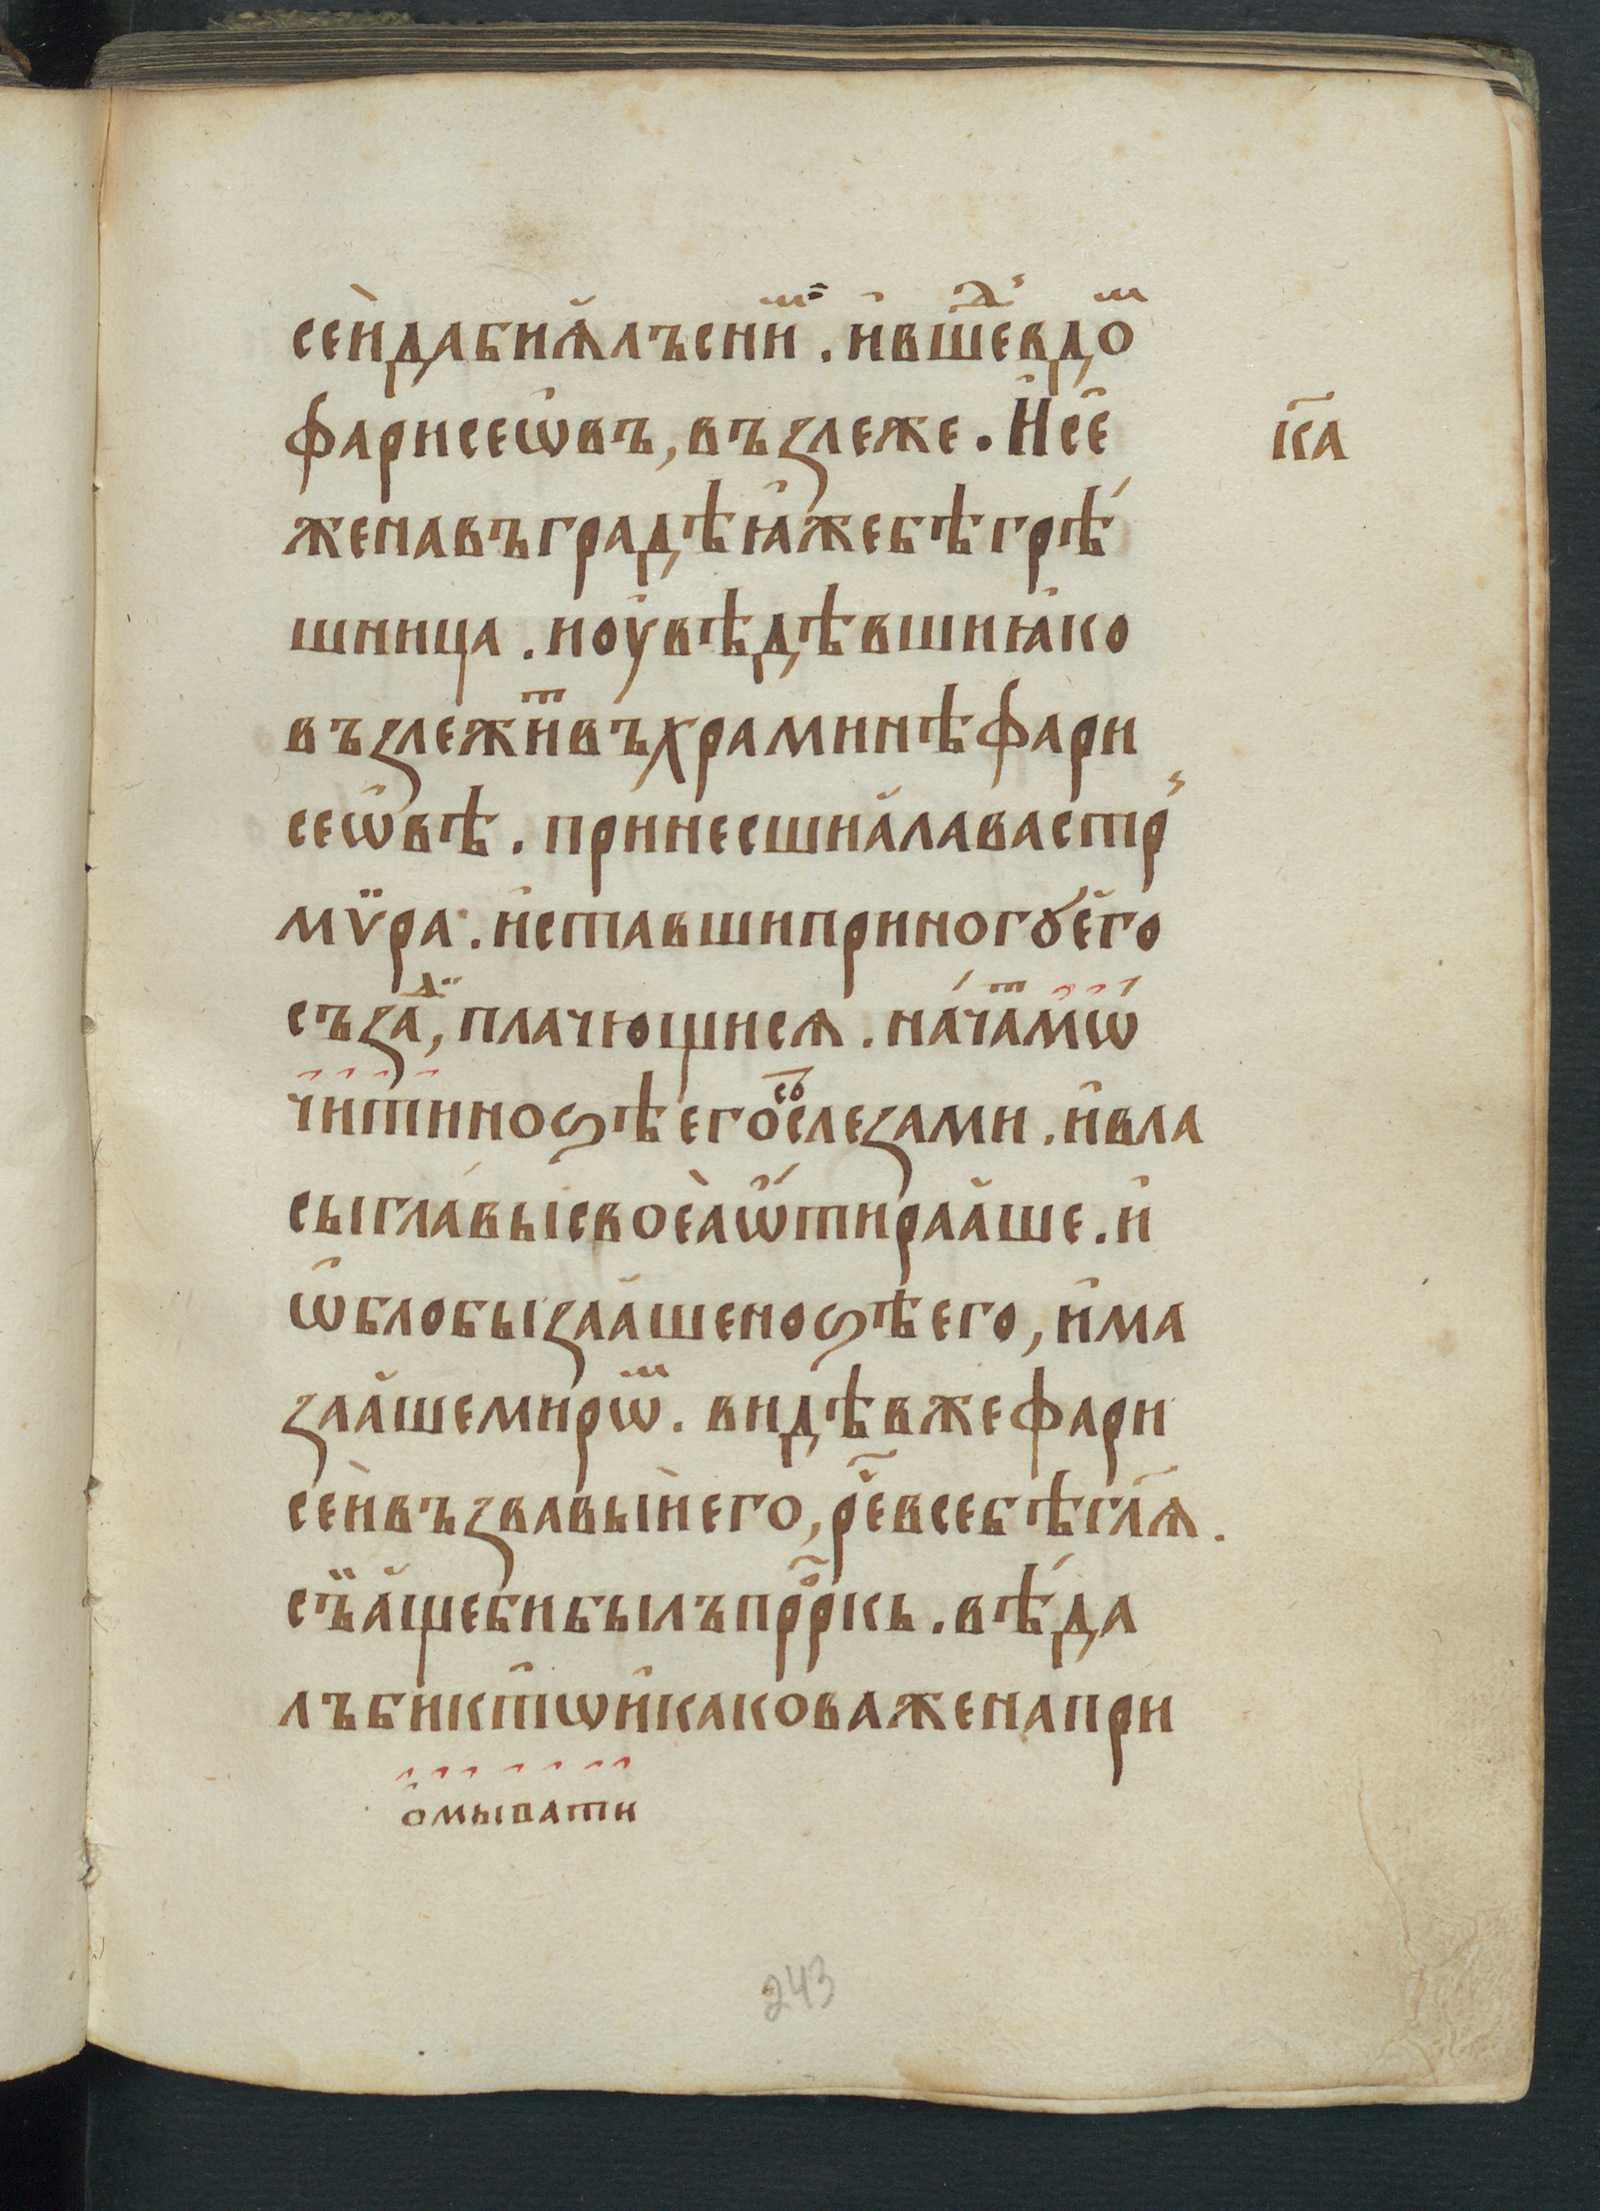 сеѝ да би ꙗ҆лъ с ни́мⷨ . и҆ вшеⷣ в дѡⷨ
фарисеѡ҆въ , възлеже . И҆ се҆
к҃а
жена въ градѣ ꙗ҆же бѣ грѣ́
шница . и оу҆вѣдѣвши ꙗ҆ко
възлежиⷮ въ храминѣ фари
сеѡ҆вѣ . принесши а҆лавастрⸯ
мѵ̈ра . и҆ ставши при ногꙋ е҆го
съзаⷣ , плачющися . начаⷮ мѡ́
чити ноѕѣ его҆ слезами . и҆ вла
сы главы́ своеа̀ ѡ҆тираа҆ше . и҆
ѡ҆блобызаа҆ше ноѕѣ его , и҆ ма
заа҆ше мирѡⷨ . видѣв же фари
сеѝ възвавыѝ его , рⷱ҇е в себѣ гл҃ѧ .
съи̏ а҆ще би былъ прⷪ҇ркь . вѣ́да
лъ би кто̑ и҆ какова жена при
о҆мывати
243